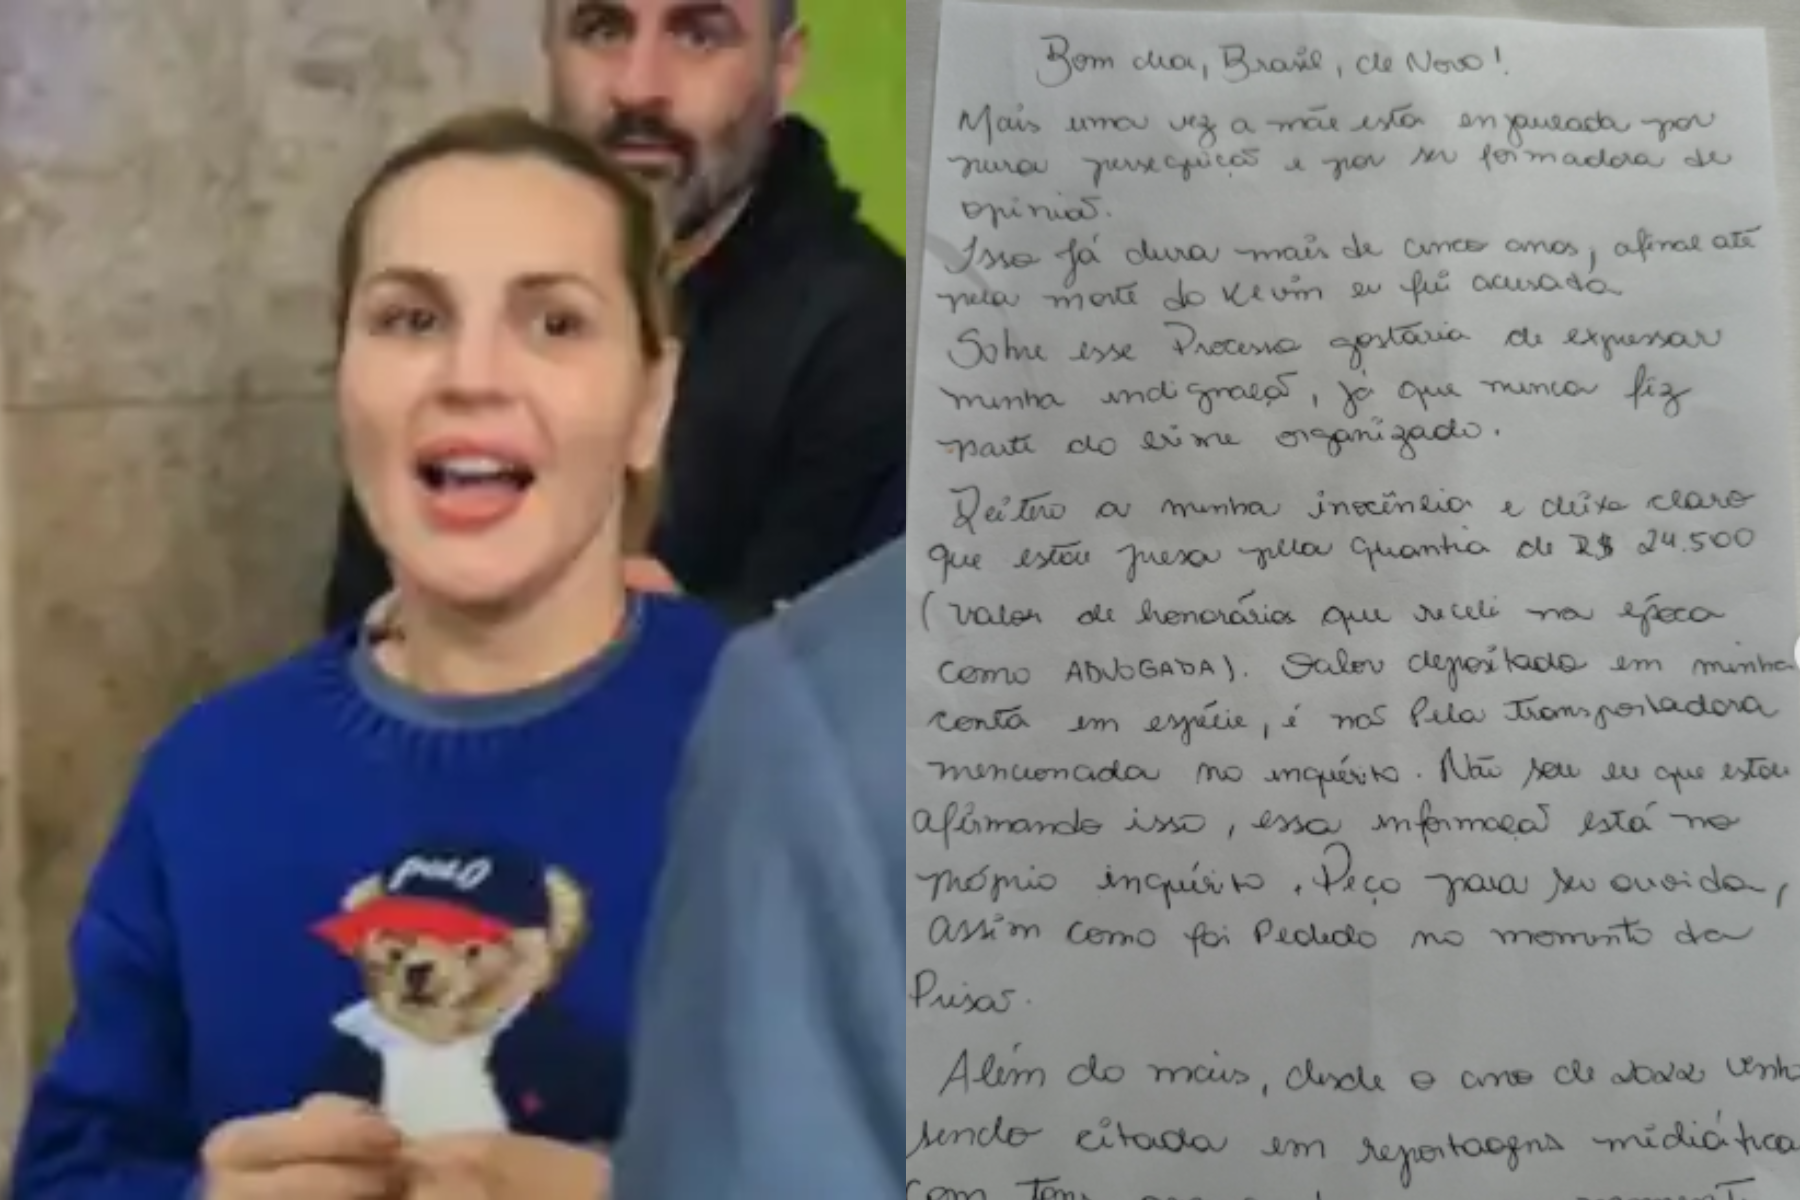 POLO
Bom dia, Brasil, de Novo!
Mais uma vez a mãe está enjaulada por
pura perseguição e por ser formadora de
opinião.
Isso já dura mais de cinco anos, afinal até
pela morte do Kevin eu fui acusada
Sobre esse Processo gostaria de expressar
minha indignação, já que nunca fiz
parte do crime organizado.
Reitero a minha inocência e deixo claro
que estou presa pela quantia de R$ 24.500
(valor de honorários que recebi na época
como ADVOGADA). Valor depositado em minha
conta em espécie, é não Pela Transportadora
mencionada no inquérito. Não sou eu que estou
afirmando isso, essa informação está no
próprio inquérito. Peço para ser ouvida,
assim como foi Pedido no momento da
Prisão.
Além do mais, desde o ano de 2022 venho
sendo citada em reportagens midiática
com